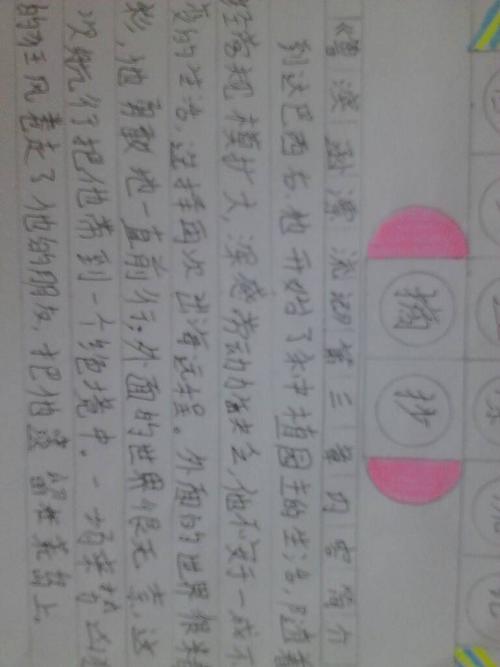 摘抄
《鲁滨孙漂流记第三章内容简介
到达巴西后,他开始了种植园主的生活,随着
经营规模扩大,深感劳动力缺乏,他不安于一成不
变的生活,选择再次进海远程。外面的世界很精
彩,他勇敢地一直前行。外面的世界很无奈,这
次航行把他带到一个绝境中。一场来势凶
的狂风卷走了他的朋友,把他滞留在荒岛上.